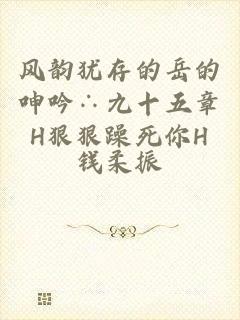 风韵犹存的岳的
呻吟∴九十五章
H狠狠躁死你H
钱柔振